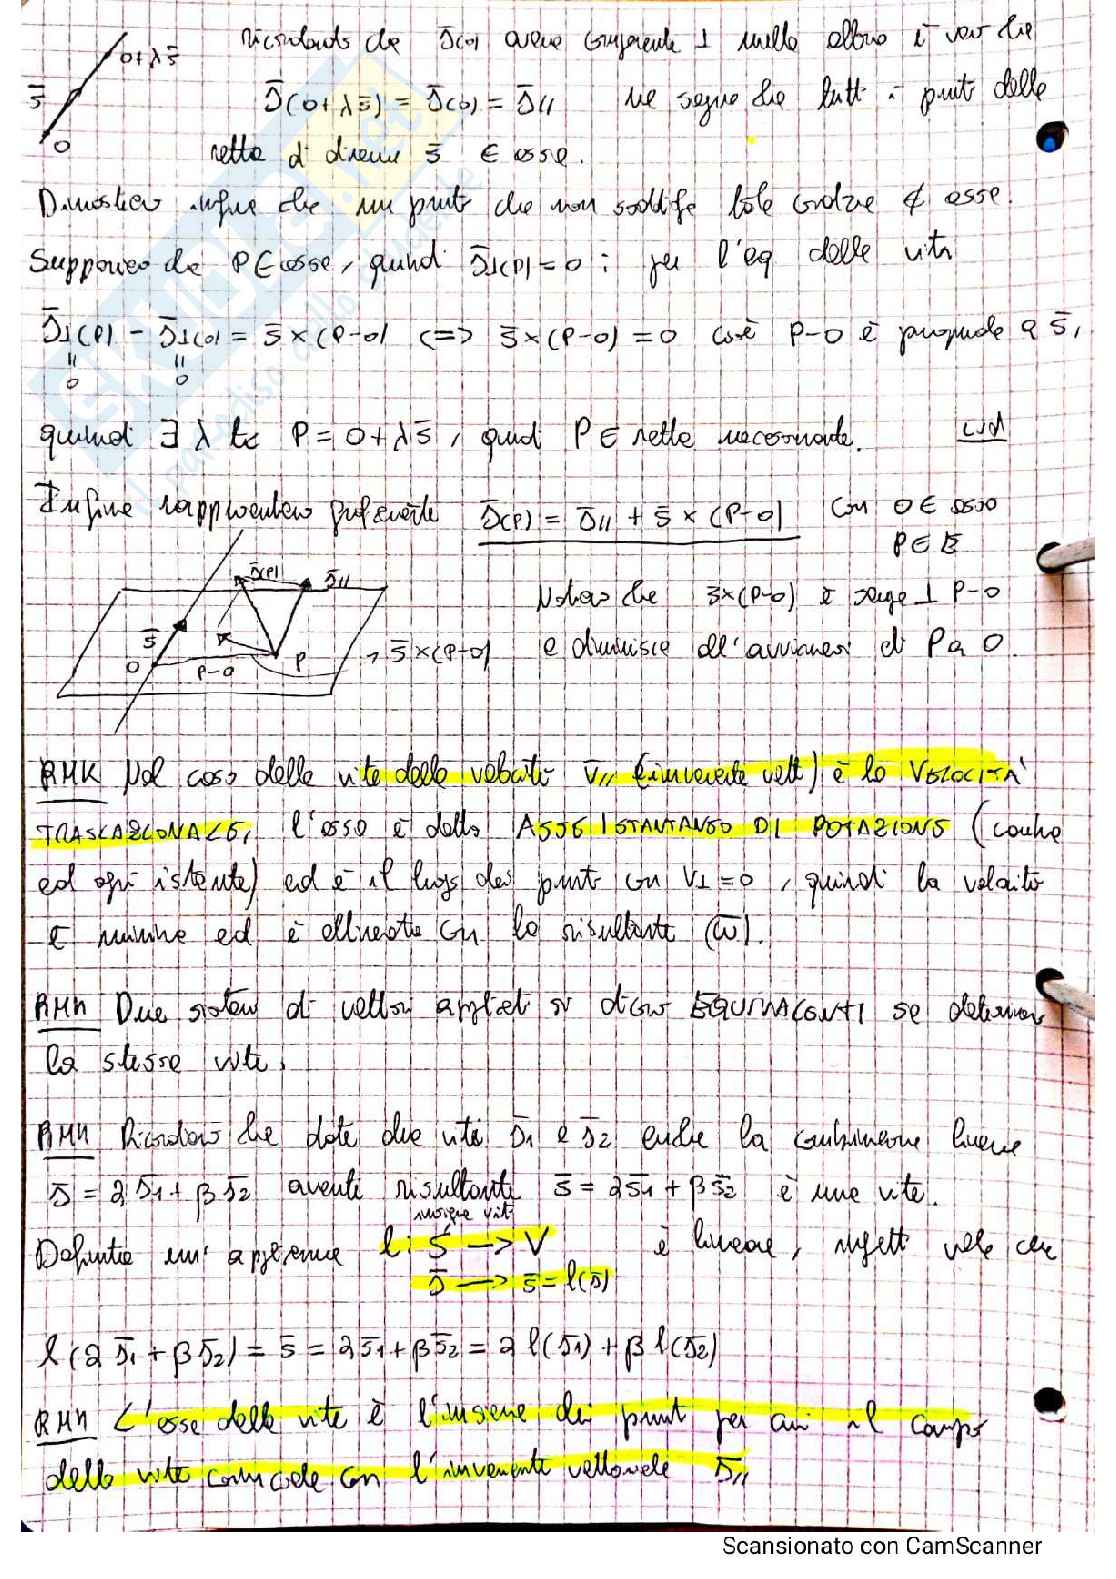 O+λs̄ ricordando che s̄(O) aveva componente ⊥ nulla allora è vero che
s̄ s̄(O+λs̄) = s̄(O) = s̄// ne segue che tutti i punti della
O retta di direzione s̄ ∈ asse.
Dimostriamo infine che un punto che non soddisfa tale condizione ∉ asse.
Supponiamo che P∈asse, quindi s̄⊥(P)=0 : per l'eq della vite
s̄⊥(P) - s̄⊥(O) = s̄×(P-O) <=> s̄×(P-O)=0 cioè P-O è proporzionale a s̄,
0 0
quindi ∃ λ tc P=O+λs̄, quindi P∈ retta necessariamente. cvd
Infine rappresentiamo graficamente s̄(P) = s̄// + s̄×(P-O) con O∈ asse
P∈E
s̄(P) s̄// Notiamo che s̄×(P-O) è sempre ⊥ P-O
s̄ O P-O P s̄×(P-O) e diminuisce all'avvicinarsi di P a O.
RMK Nel caso della vite delle velocità v̄// (invariante vett) è la VELOCITÀ
TRASLAZIONALE, l'asse è detto ASSE ISTANTANEO DI ROTAZIONE (cambia
ad ogni istante) ed è il luogo dei punti con v⊥=0, quindi la velocità
è minima ed è allineata con la risultante (ω̄).
RMK Due sistemi di vettori applicati si dicono EQUIVALENTI se determinano
la stessa vite.
RMK Ricordiamo che date due viti s̄1 e s̄2 anche la combinazione lineare
s̄ = αs̄1 + βs̄2 avente risultante s̄ = αs̄1 + βs̄2 è una vite.
insieme viti
Definita un' applicazione l: S → V è lineare, infatti vale che
s̄ → s̄ = l(s̄)
l(αs̄1 + βs̄2) = s̄ = αs̄1 + βs̄2 = α l(s̄1) + β l(s̄2)
RMK L'asse della vite è l'insieme dei punti per cui il campo
della vite coincide con l'invariante vettoriale s̄//
Scansionato con CamScanner